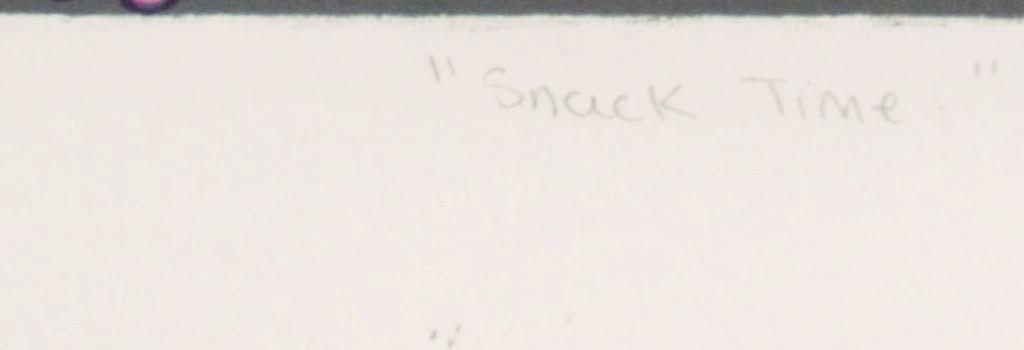 "Snack Time."